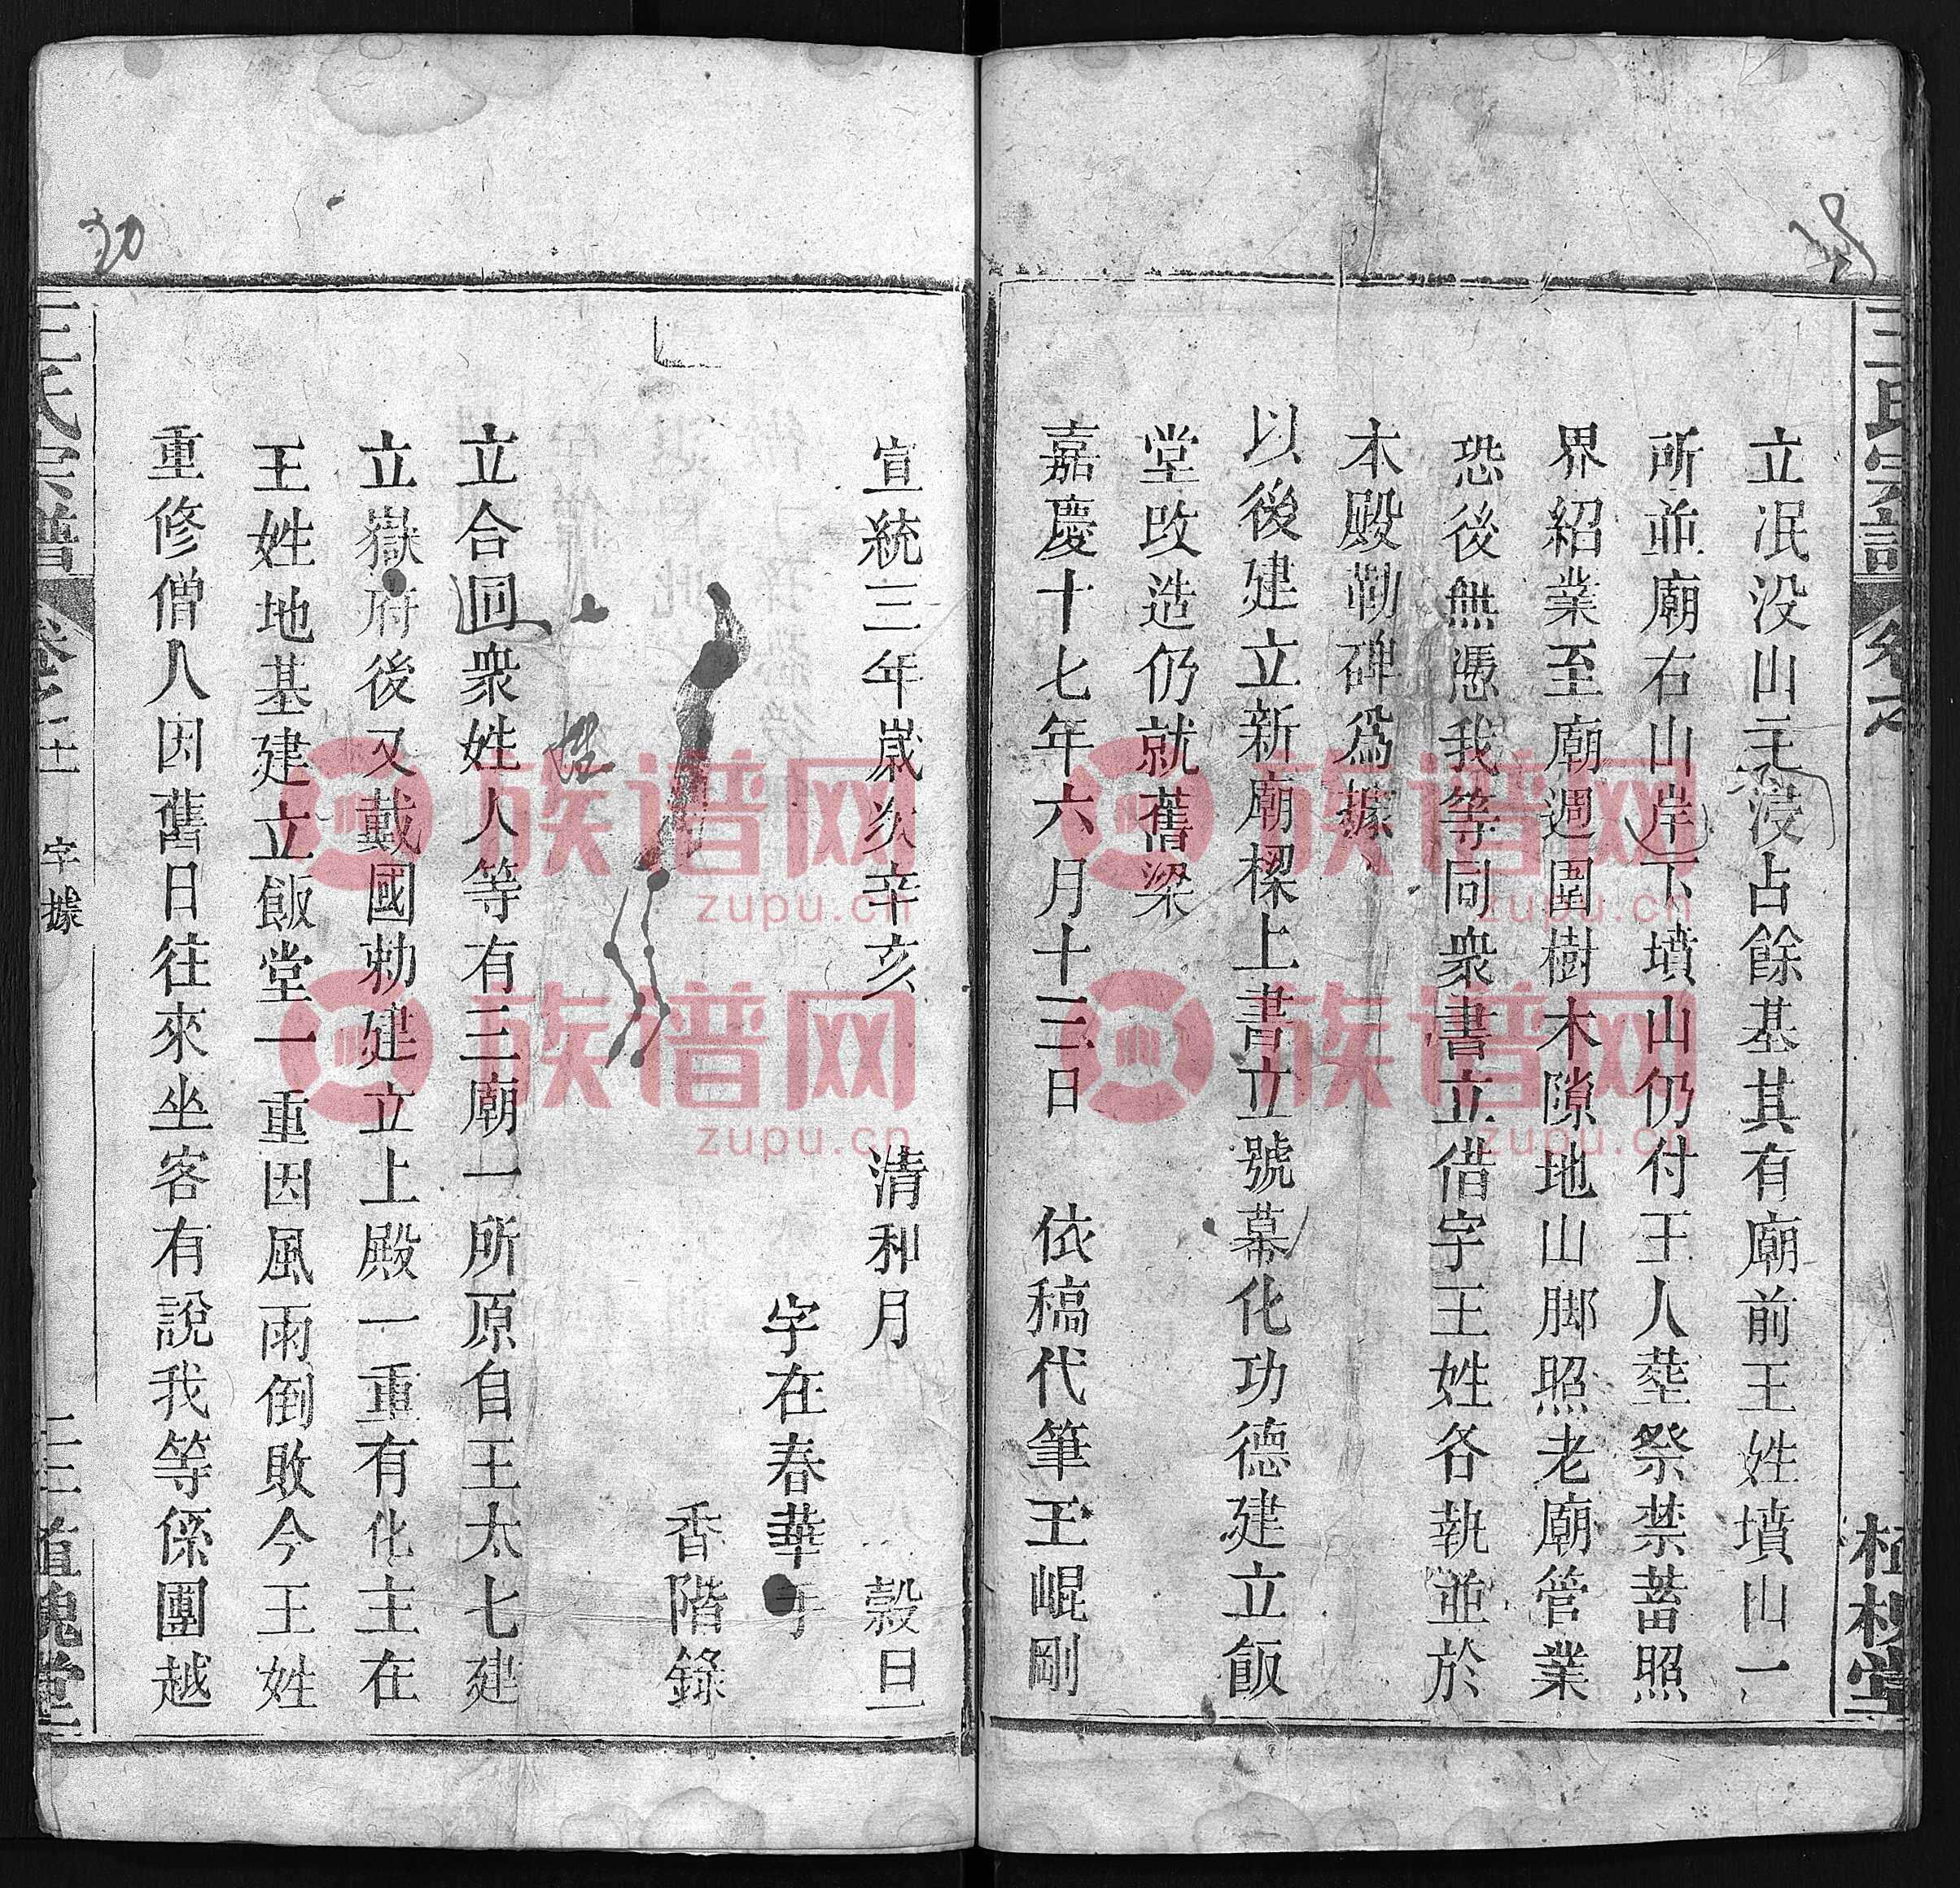 王氏宗譜
卷之
植槐堂
立泯没山主浸占餘基其有廟前王姓墳山一
所並廟右山岸下墳山仍付王人塟祭禁蓄照
界紹業至廟週圍樹木隙地山脚照老廟管業
恐後無憑我等同衆書立借字王姓各執並於
本殿勒碑爲據
以後建立新廟樑上書立號幕化功德建立飯
堂改造仍就舊梁
嘉慶十七年六月十三日 依稿代筆王崐剛
宣統三年歲次辛亥 清和月 穀旦
字在春華手
香階錄
姓
立合同衆姓人等有三廟一所原自王太七建
立嶽府後又戴國勅建立上殿一重有化主在
王姓地基建立飯堂一重因風雨倒敗今王姓
重修僧人因舊日往來坐客有説我等係團越
王氏宗譜
卷之二
字據
植槐堂
20
族谱网
zupu.cn
族谱网
zupu.cn
族谱网
zupu.cn
族谱网
zupu.cn